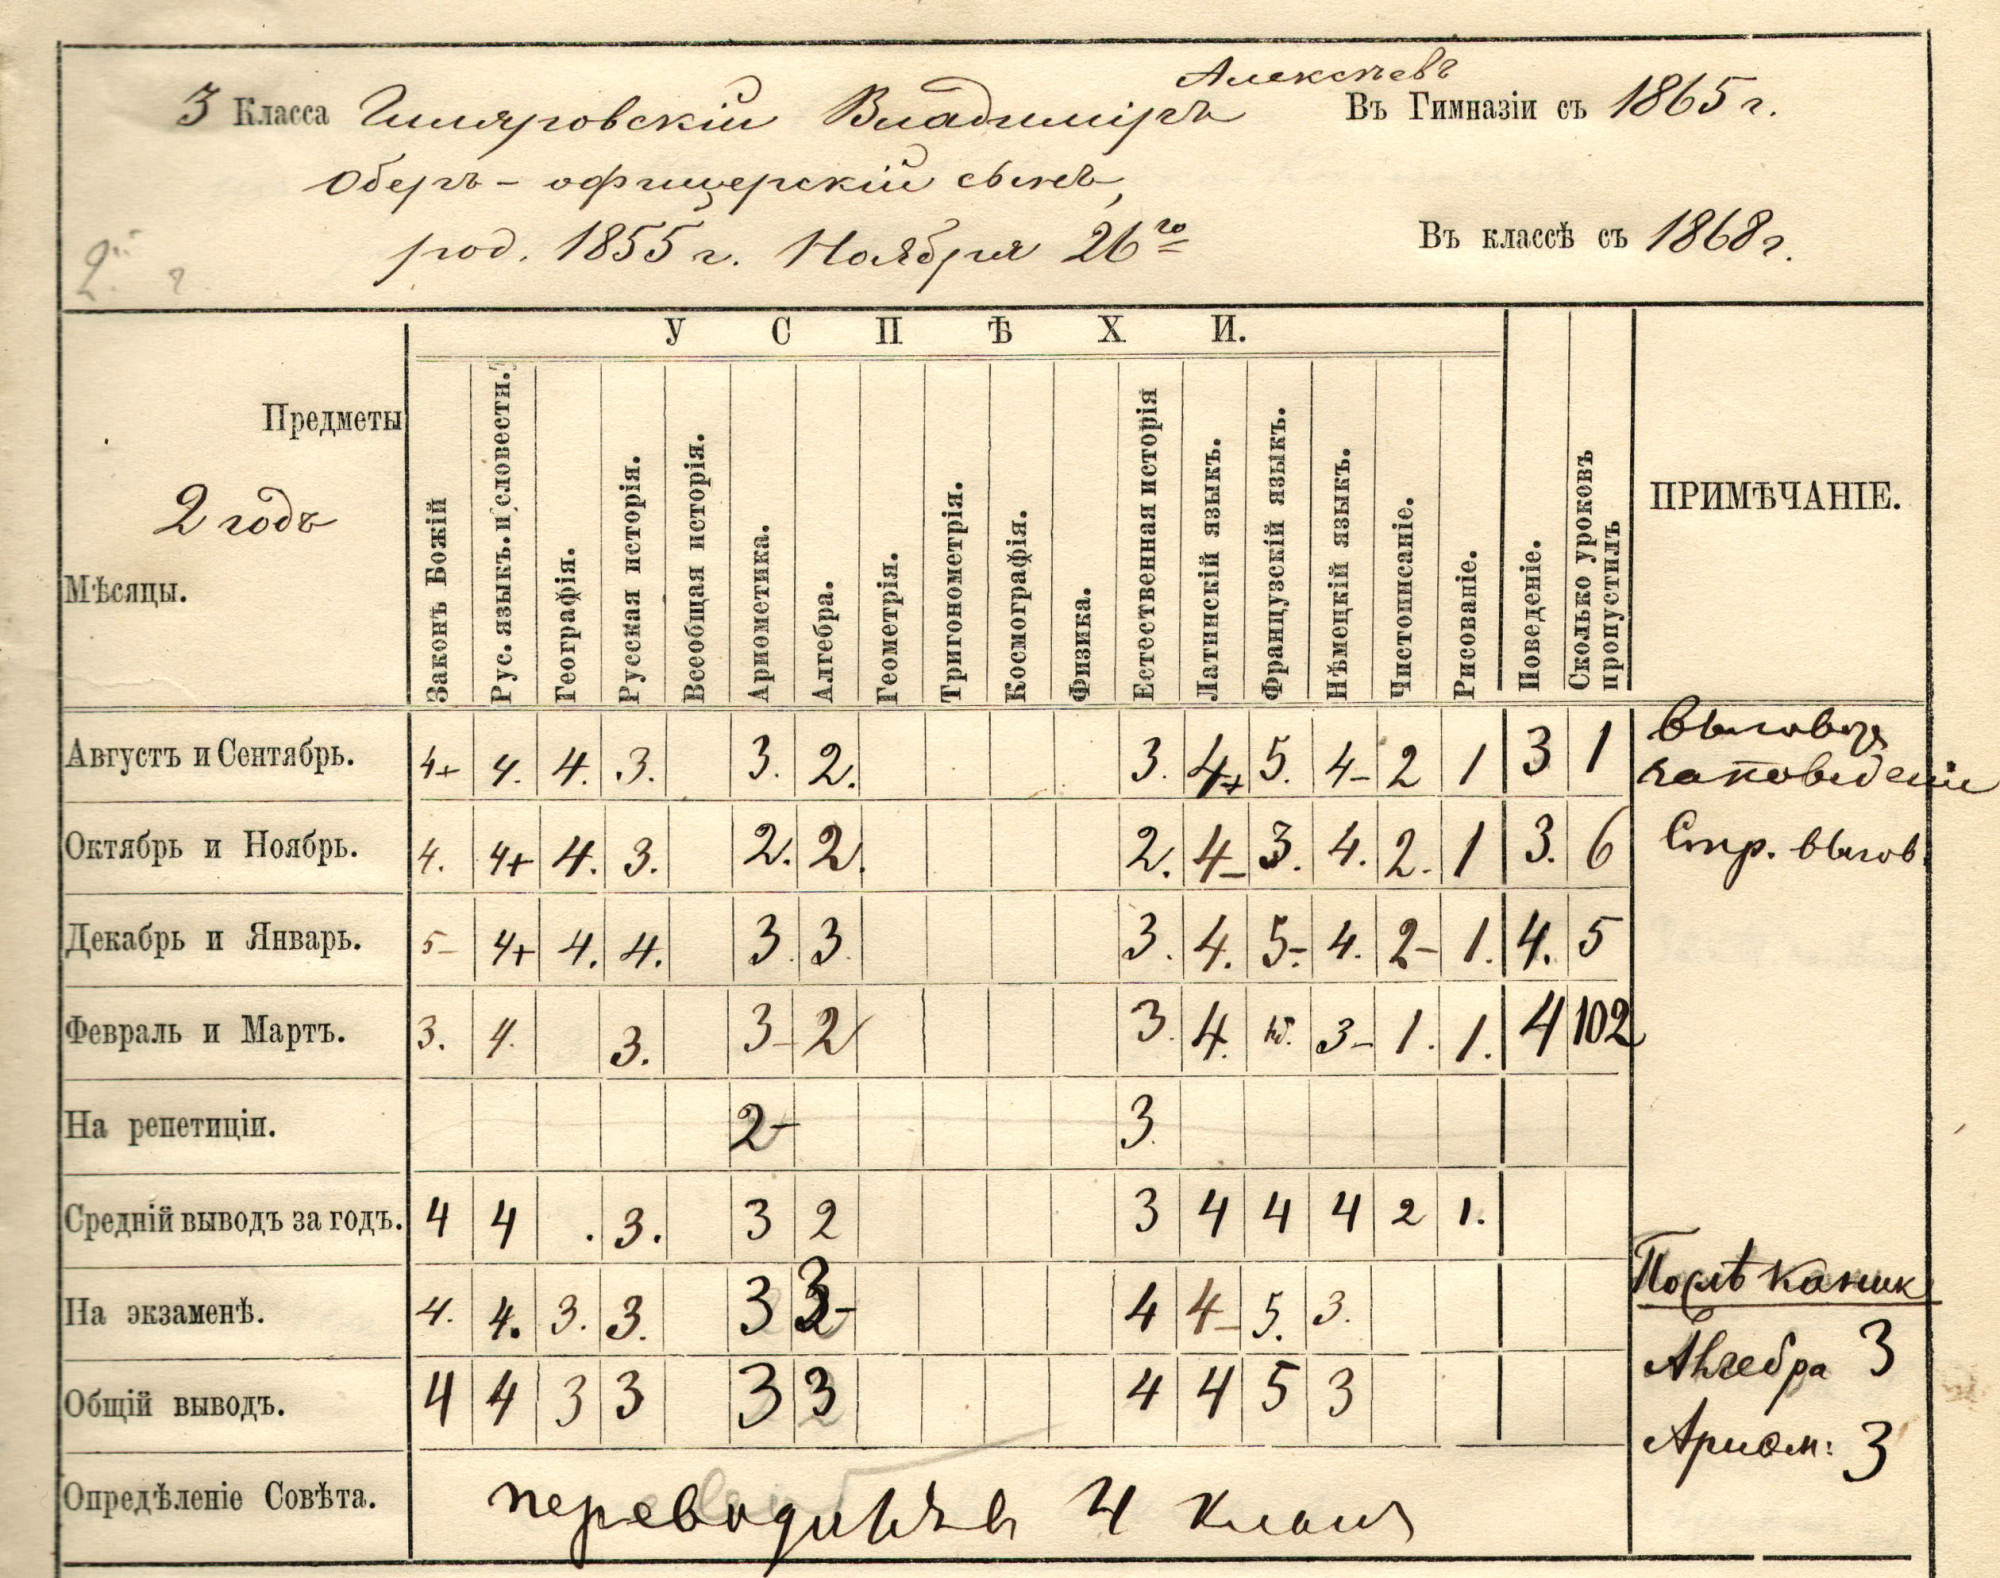 3 Класса Гиляровскій Владиміръ Алексѣевъ Въ Гимназіи съ 1865 г.
Оберъ-офицерскій сынъ,
род. 1855 г. Ноября 26го Въ классѣ съ 1868 г.
УСПѢХИ.
Предметы
2 годъ
Мѣсяцы.
Законъ Божій
Рус. языкъ. и словестн.
Географія.
Русская исторія.
Всеобщая исторія.
Ариөметика.
Алгебра.
Геометрія.
Тригонометрія.
Космографія.
Физика.
Естественная исторія
Латинскій языкъ.
Французскій языкъ.
Нѣмецкій языкъ.
Чистописаніе.
Рисованіе.
Поведеніе.
Сколько уроковъ
пропустилъ
ПРИМѢЧАНІЕ.
Августъ и Сентябрь. 4+ 4. 4. 3. 3. 2. 3. 4+ 5. 4- 2 1 3 1 Выговоръ
за поведеніе
Октябрь и Ноябрь. 4. 4+ 4. 3. 2. 2. 2. 4- 3. 4. 2. 1 3. 6 Стр. выгов.
Декабрь и Январь. 5- 4+ 4. 4. 3. 3. 3. 4. 5-. 4. 2- 1. 4. 5
Февраль и Мартъ. 3. 4. 3. 3- 2 3. 4. нб. 3- 1. 1. 4 102
На репетиціи. 2- 3.
Средній выводъ за годъ. 4 4 . 3. 3 2 3 4 4 4 2 1.
На экзаменѣ. 4. 4. 3. 3. 3 3 4 4- 5. 3.
Общій выводъ. 4 4 3 3 3 3 4 4 5 3
Послѣ каник
Алгебра 3
Ариөм: 3
Опредѣленіе Совѣта. 4